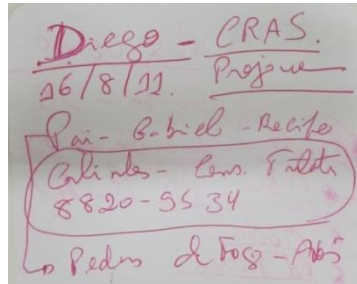 Diego - CRAS.
16/8/11. Projove
Pai - Gabriel - Recife
Cons. Tutelar
8820-5534
Pedra de Fogo -